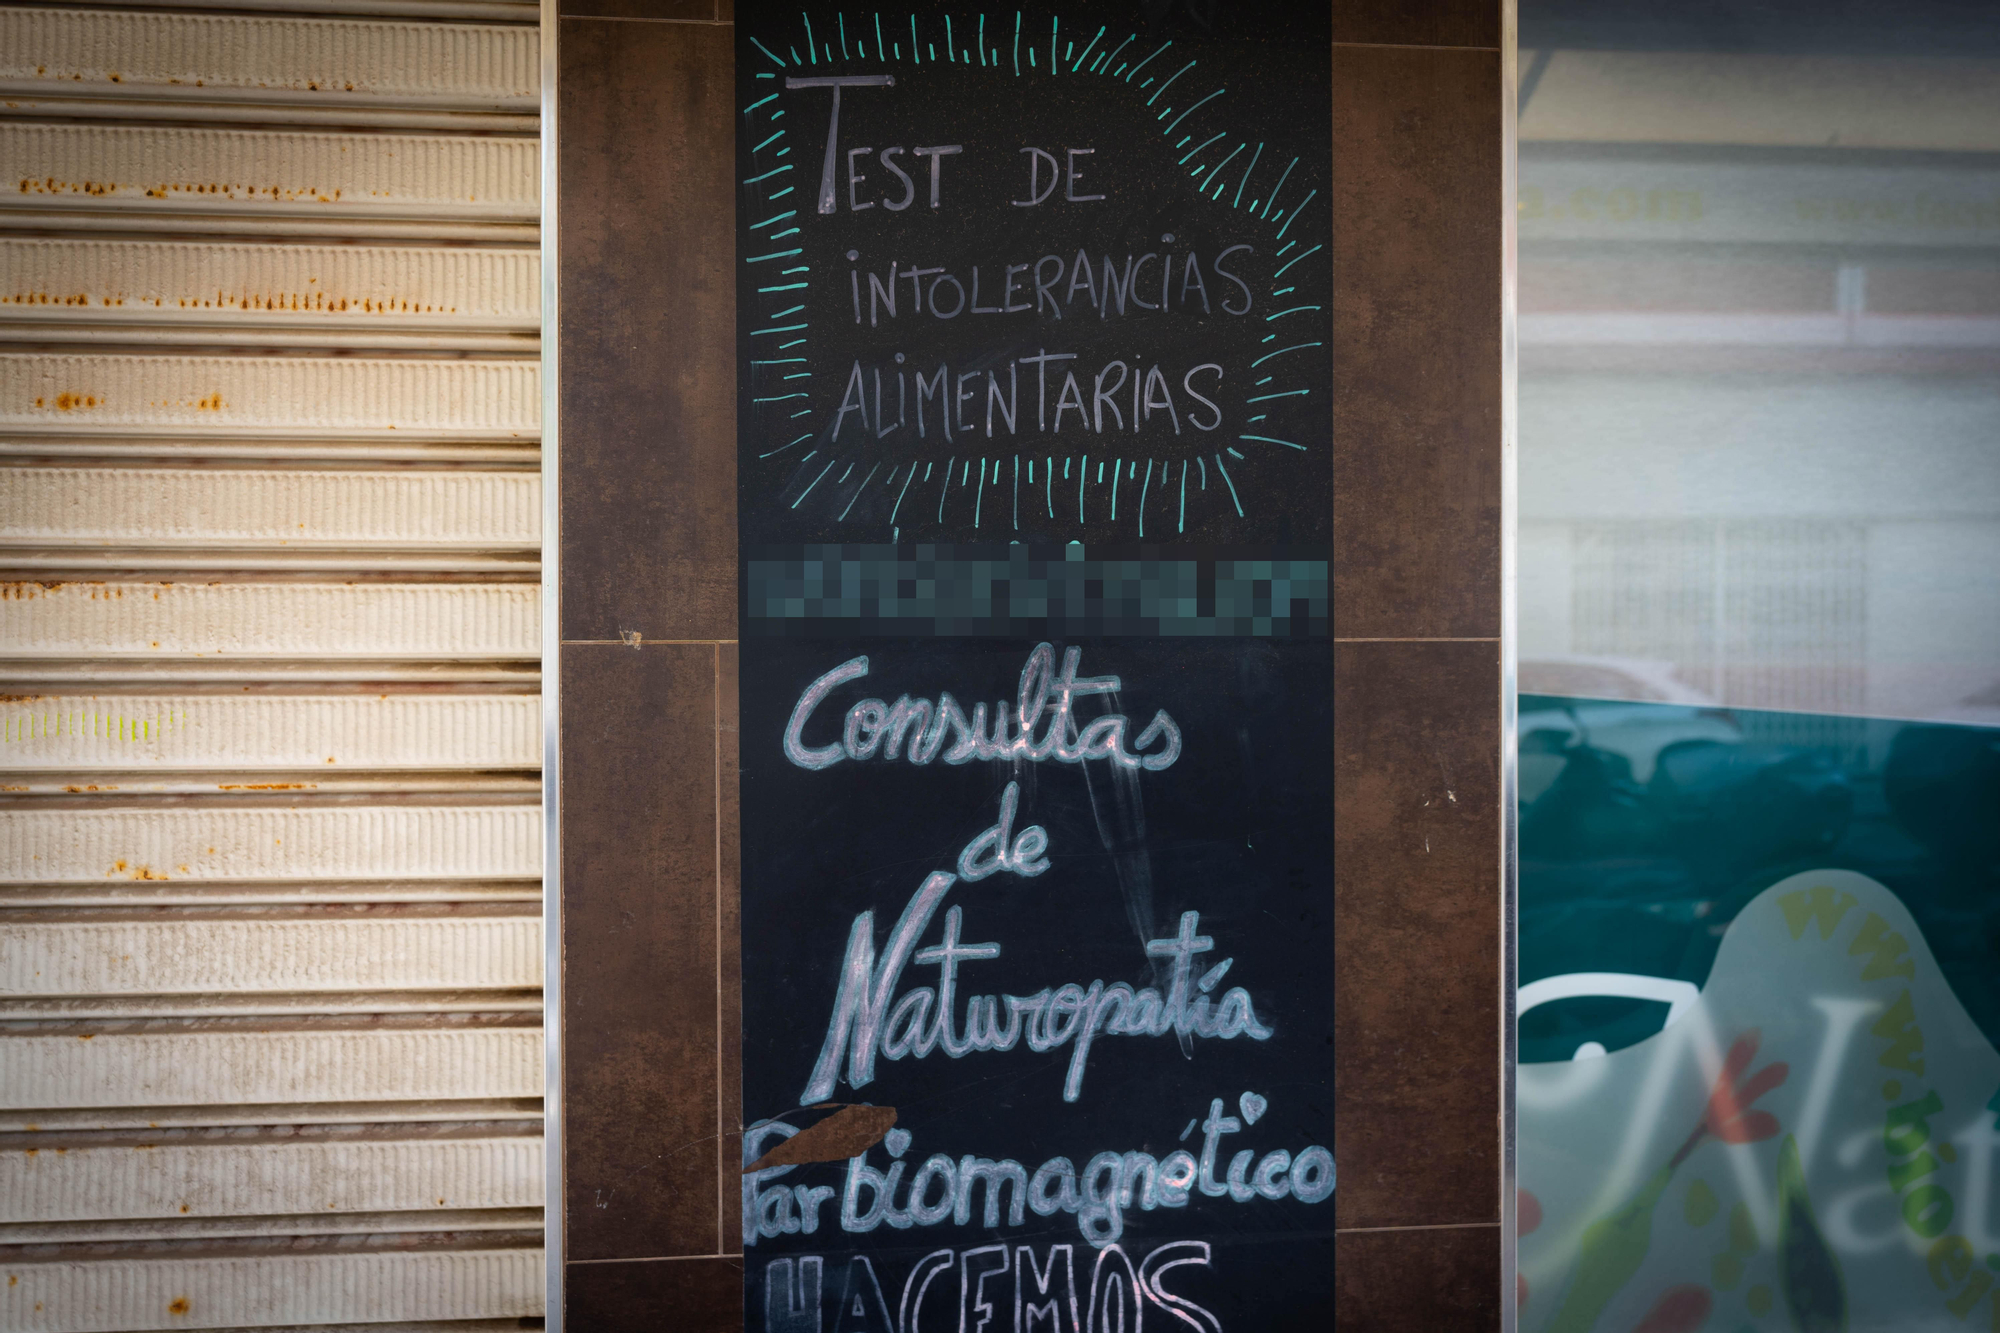 TEST DE
INTOLERANCIAS
ALIMENTARIAS
Consultas
de
Naturopatía
Par biomagnético
HACEMOS
www.bio
Nat